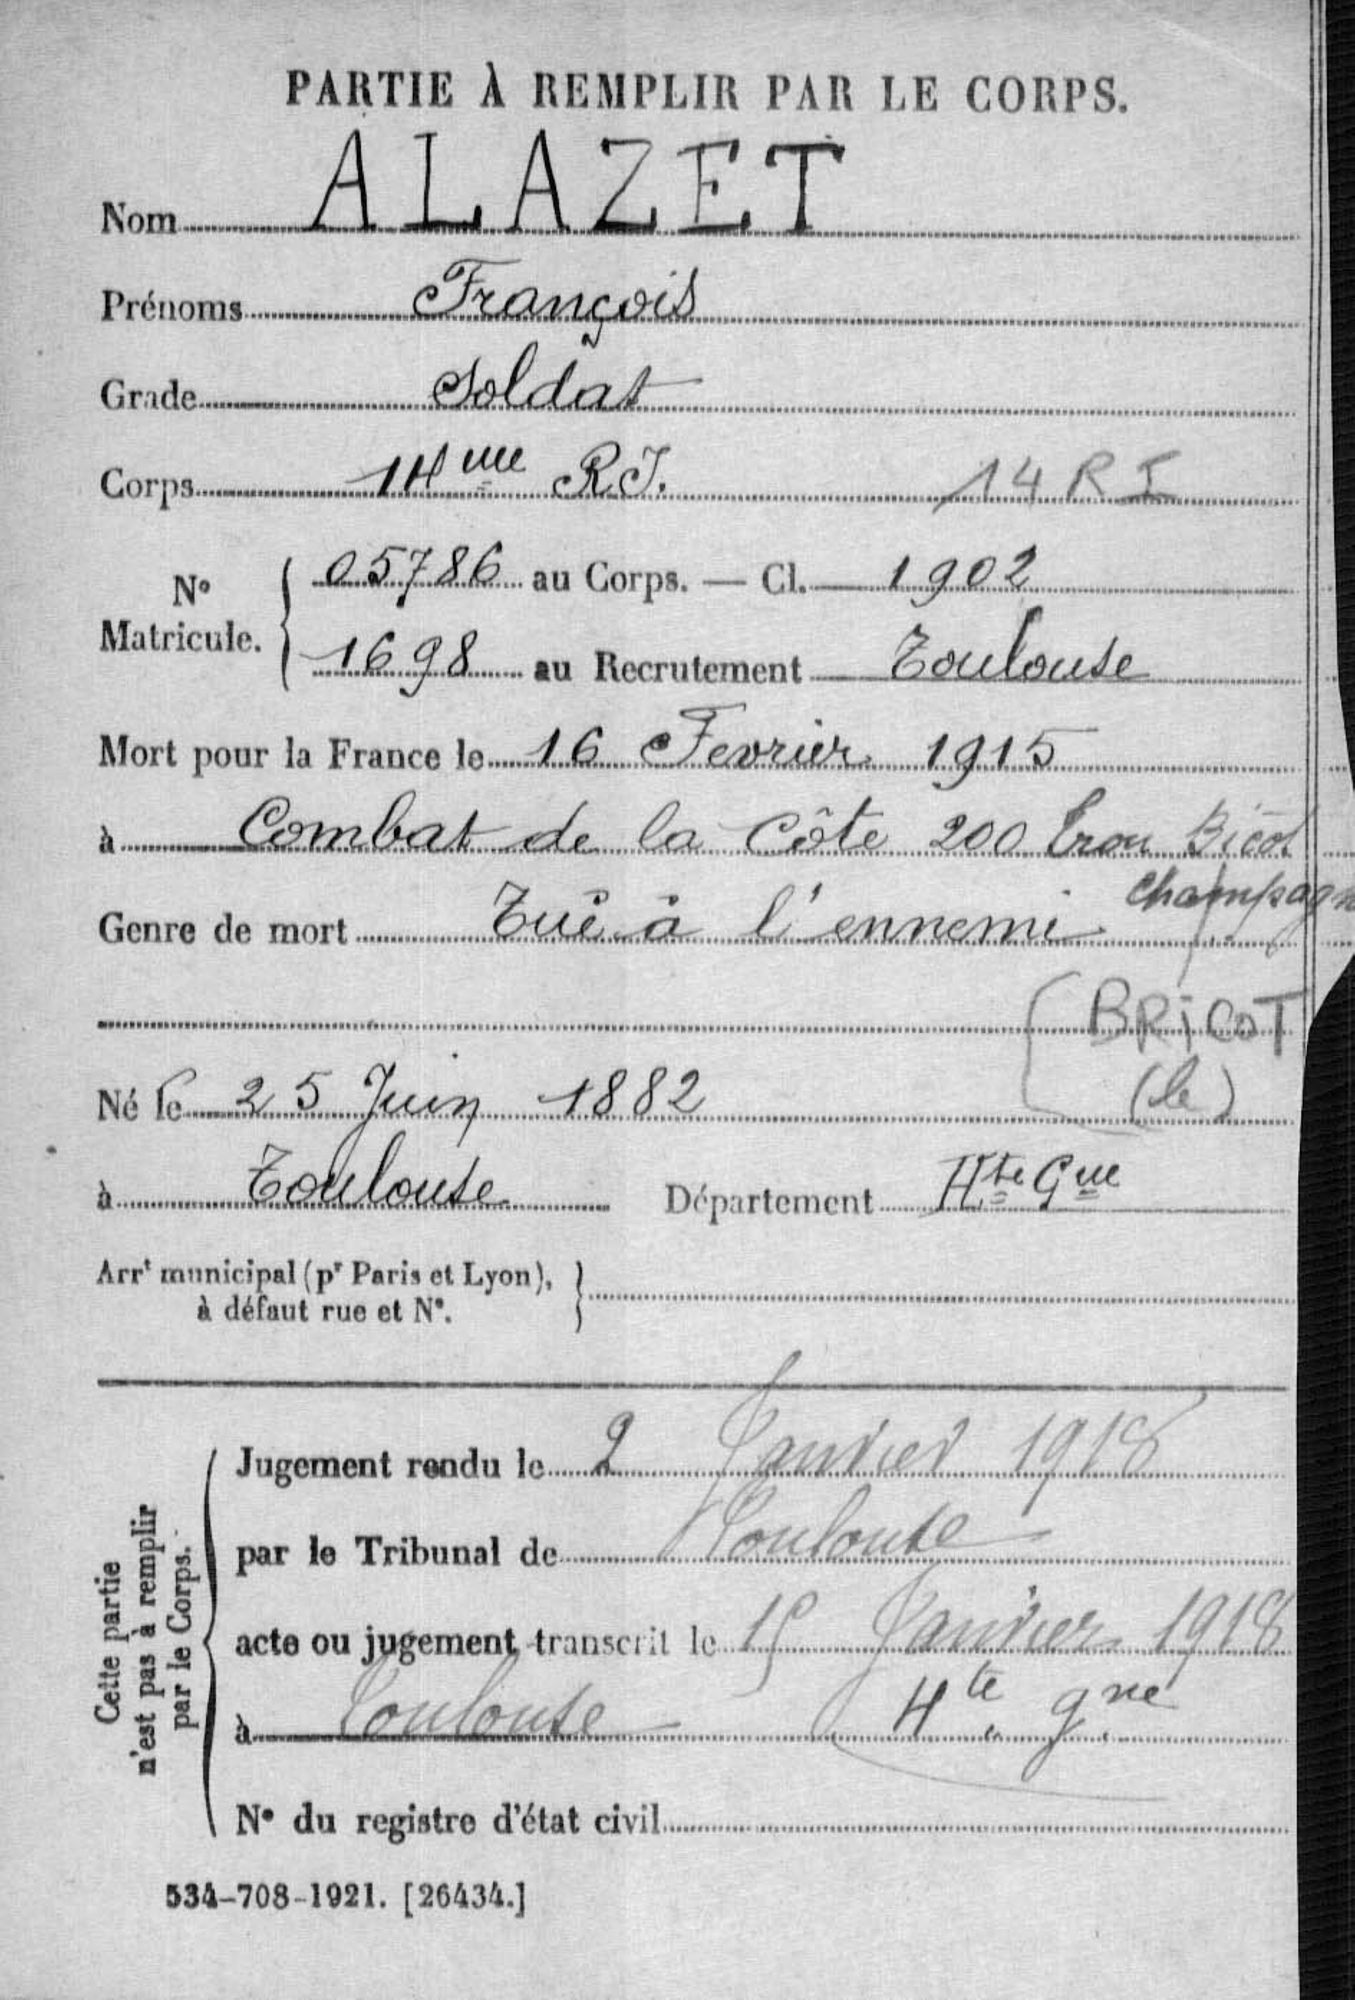 PARTIE À REMPLIR PAR LE CORPS.
Nom ALAZET
Prénoms François
Grade Soldat
Corps 14me R.I. 14 RI
No Matricule. { 05786 au Corps. — Cl. 1902
1698 au Recrutement Toulouse
Mort pour la France le 16 Fevrier 1915
à Combat de la Côte 200 Trou Bicot
Champagn
Genre de mort Tué à l'ennemi
BRICOT
(le)
Né le 25 Juin 1882
à Toulouse Département Hte Gne
Arrt municipal (pr Paris et Lyon),
à défaut rue et No.
Cette partie
n'est pas à remplir
par le Corps.
Jugement rendu le 2 Janvier 1918
par le Tribunal de Toulouse
acte ou jugement transcrit le 15 Janvier 1918
à Toulouse Hte gne
No du registre d'état civil
534-708-1921. [26434.]